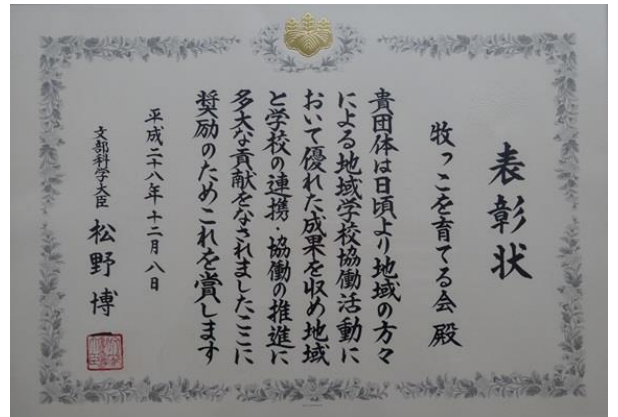 表彰状
牧っこを育てる会 殿
貴団体は日頃より地域の方々
による地域学校協働活動に
おいて優れた成果を収め地域
と学校の連携・協働の推進に
多大な貢献をなされましたここに
奨励のためこれを賞します
平成二十八年十二月八日
文部科学大臣 松野博一